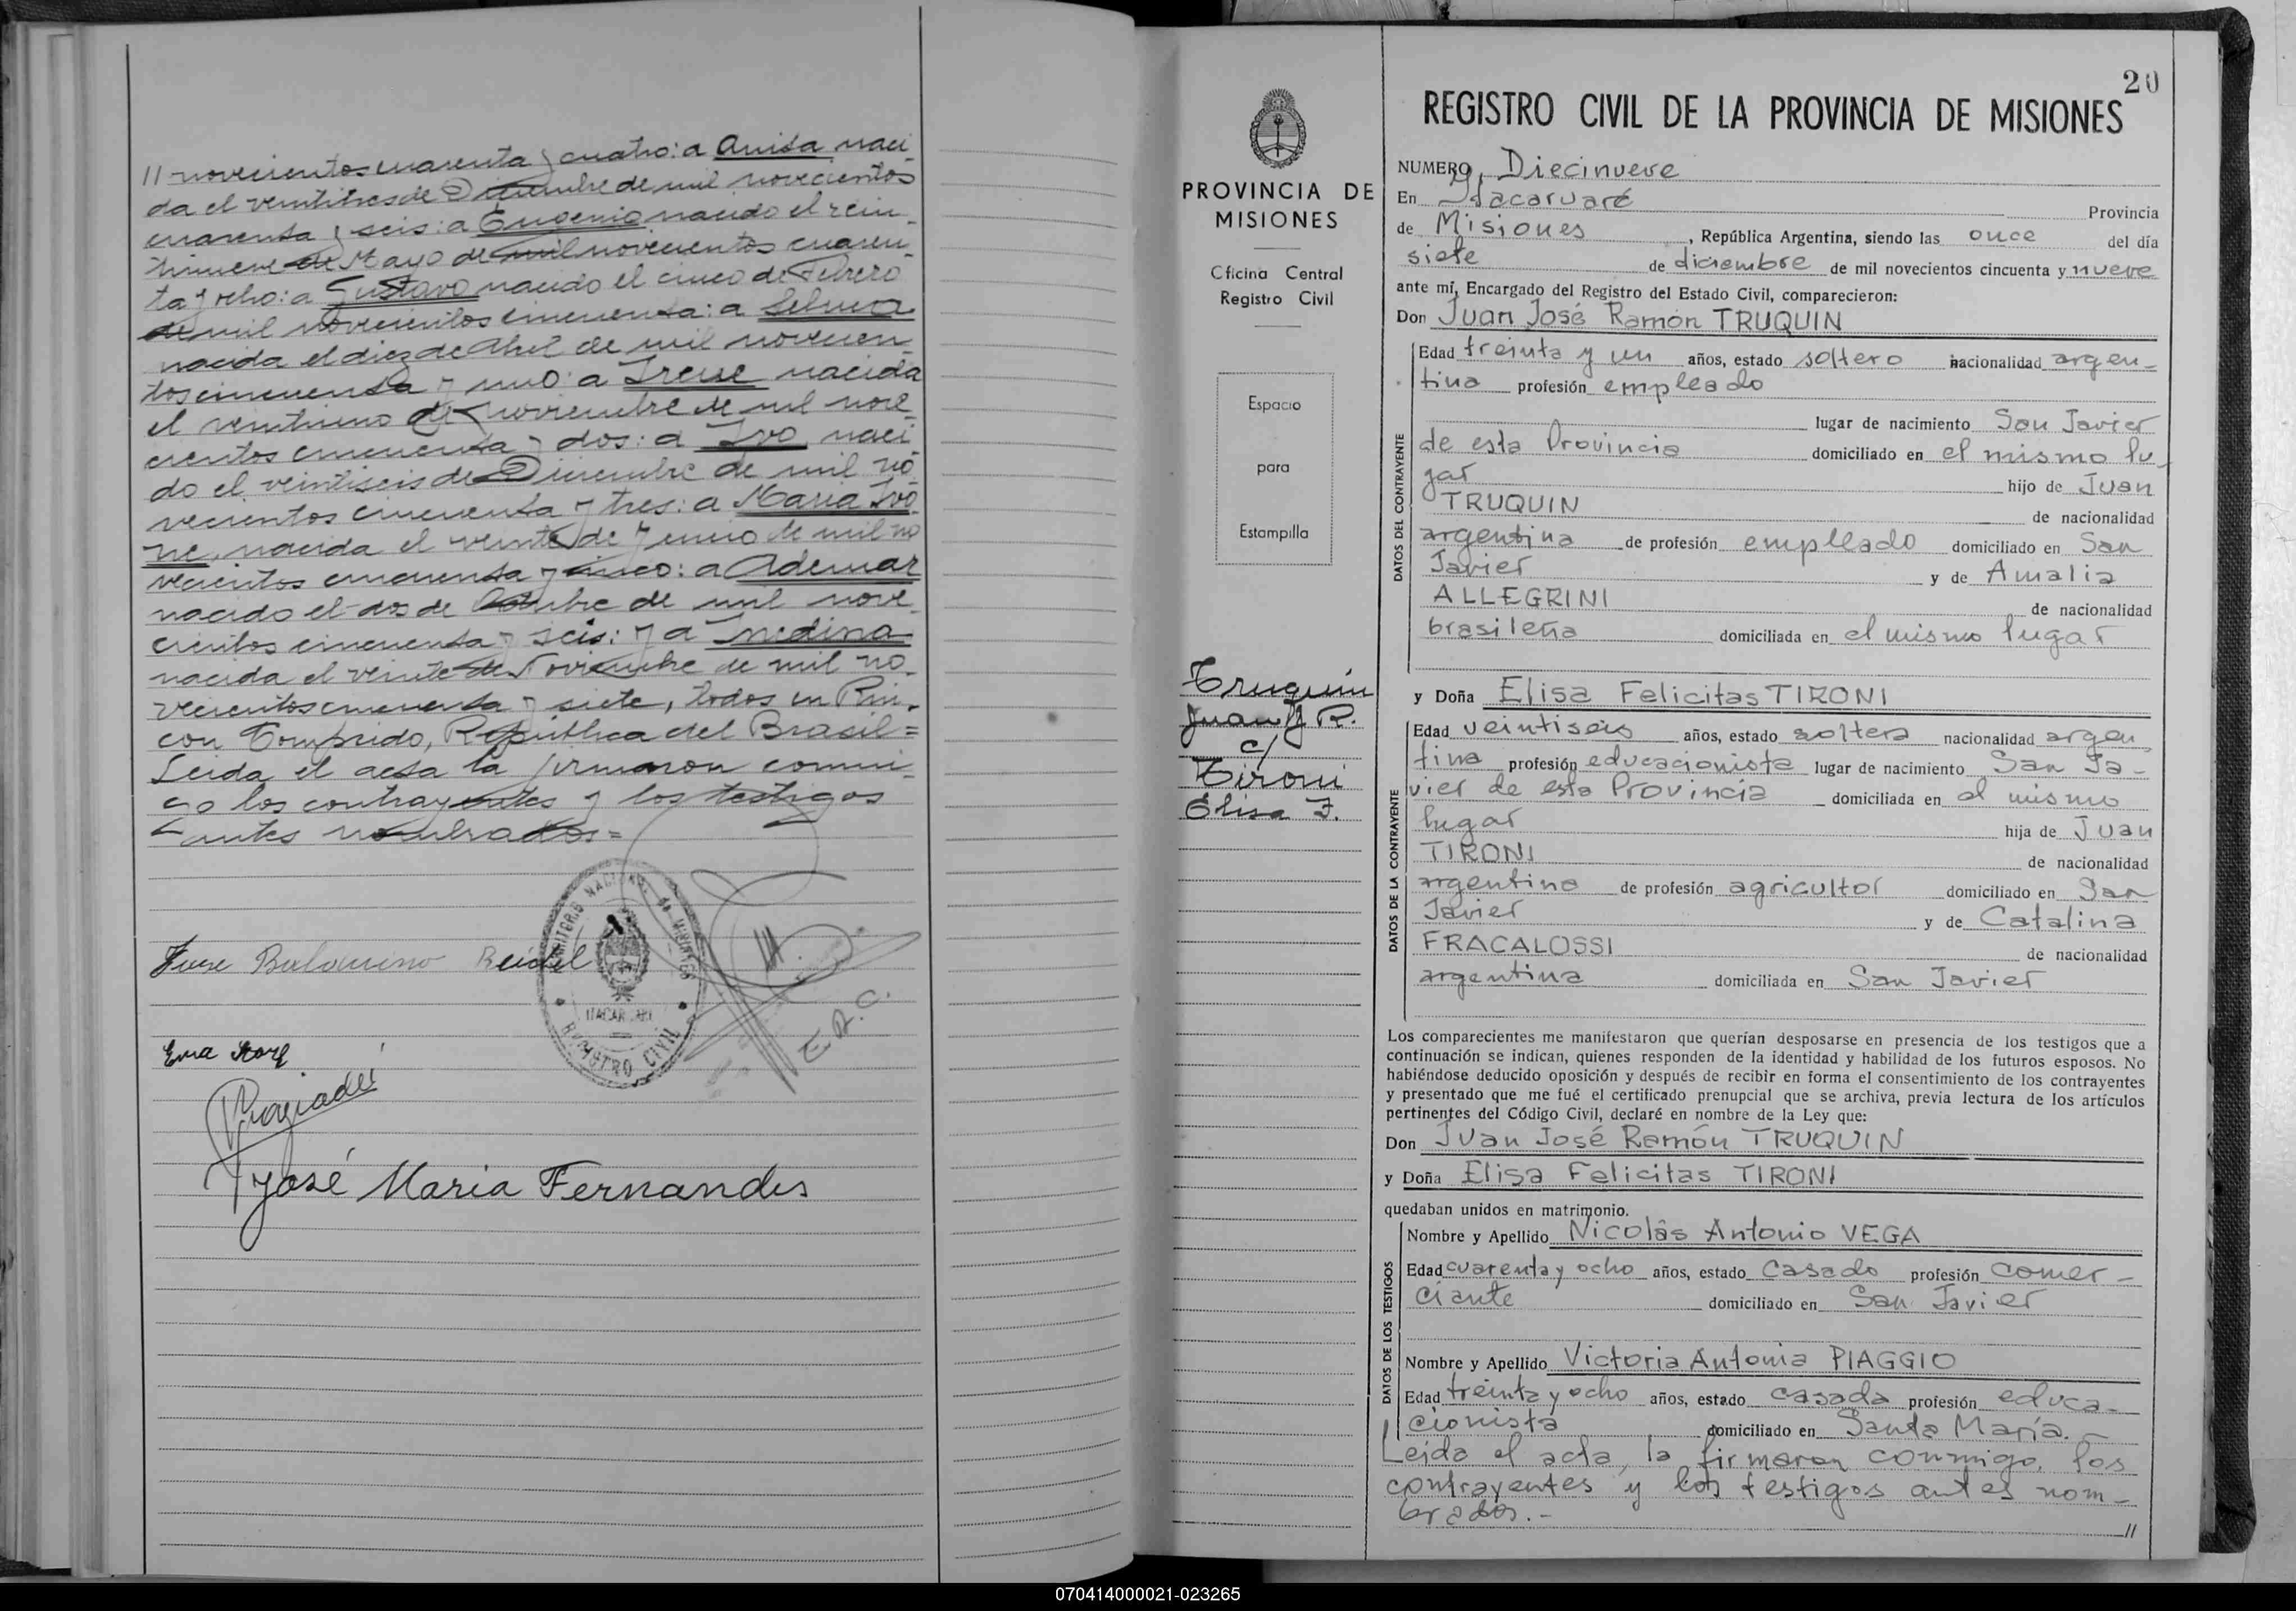 // novecientos cuarenta y cuatro: a Anisa naci-
da el veintitres de Diciembre de mil novecientos
cuarenta y seis: a Eugenio nacido el vein-
tinueve de Mayo de mil novecientos cuaren-
ta y ocho: a Gustavo nacido el cinco de Febrero
de mil novecientos cincuenta: a Selma
nacida el diez de Abril de mil novecien-
tos cincuenta y uno: a Irene nacida
el veintiuno de Noviembre de mil nove-
cientos cincuenta y dos: a Ivo naci
do el veintiseis de Diciembre de mil no-
vecientos cincuenta y tres: a Maria Ivo-
ne, nacida el veinte de Junio de mil no
vecientos cincuenta y cinco: a Ademar
nacido el dos de Octubre de mil nove-
cientos cincuenta y seis: y a Inedina
nacida el veinte de Noviembre de mil no-
vecientos cincuenta y siete, todos en Rin-
con Comprido, República del Brasil=
Leida el acta la firmaron conmi-
go los contrayentes y los testigos
antes nombrados=
TERRITORIO NACIONAL DE MISIONES
ITACARUARE
REGISTRO CIVIL
E.R.C.
Reidel
José Maria Fernandes
20
REGISTRO CIVIL DE LA PROVINCIA DE MISIONES
PROVINCIA DE
MISIONES
Oficina Central
Registro Civil
Espacio
para
Estampilla
Truquin
Juan J R.
c/
Tironi
Elisa F.
NUMERO, Diecinueve
En Itacaruaré Provincia
de Misiones, República Argentina, siendo las once del día
siete de diciembre de mil novecientos cincuenta y nueve
ante mí, Encargado del Registro del Estado Civil, comparecieron:
Don Juan José Ramón TRUQUIN
DATOS DEL CONTRAYENTE
Edad treinta y un años, estado soltero nacionalidad argen-
tina profesión empleado
lugar de nacimiento San Javier
de esta Provincia domiciliado en el mismo lu-
gar hijo de Juan
TRUQUIN de nacionalidad
argentina de profesión empleado domiciliado en San
Javier y de Amalia
ALLEGRINI de nacionalidad
brasileña domiciliada en el mismo lugar
y Doña Elisa Felicitas TIRONI
DATOS DE LA CONTRAYENTE
Edad veintiseis años, estado soltera nacionalidad argen-
tina profesión educacionista lugar de nacimiento San Ja-
vier de esta Provincia domiciliada en el mismo
lugar hija de Juan
TIRONI de nacionalidad
argentina de profesión agricultor domiciliado en San
Javier y de Catalina
FRACALOSSI de nacionalidad
argentina domiciliada en San Javier
Los comparecientes me manifestaron que querían desposarse en presencia de los testigos que a
continuación se indican, quienes responden de la identidad y habilidad de los futuros esposos. No
habiéndose deducido oposición y después de recibir en forma el consentimiento de los contrayentes
y presentado que me fué el certificado prenupcial que se archiva, previa lectura de los artículos
pertinentes del Código Civil, declaré en nombre de la Ley que:
Don Juan José Ramón TRUQUIN
y Doña Elisa Felicitas TIRONI
quedaban unidos en matrimonio.
DATOS DE LOS TESTIGOS
Nombre y Apellido Nicolás Antonio VEGA
Edad cuarenta y ocho años, estado casado profesión comer-
ciante domiciliado en San Javier
Nombre y Apellido Victoria Antonia PIAGGIO
Edad treinta y ocho años, estado casada profesión educa-
cionista domiciliado en Santa María.-
Leida el acta, la firmaron conmigo, los
contrayentes y los testigos antes nom-
brados.- //
070414000021-023265